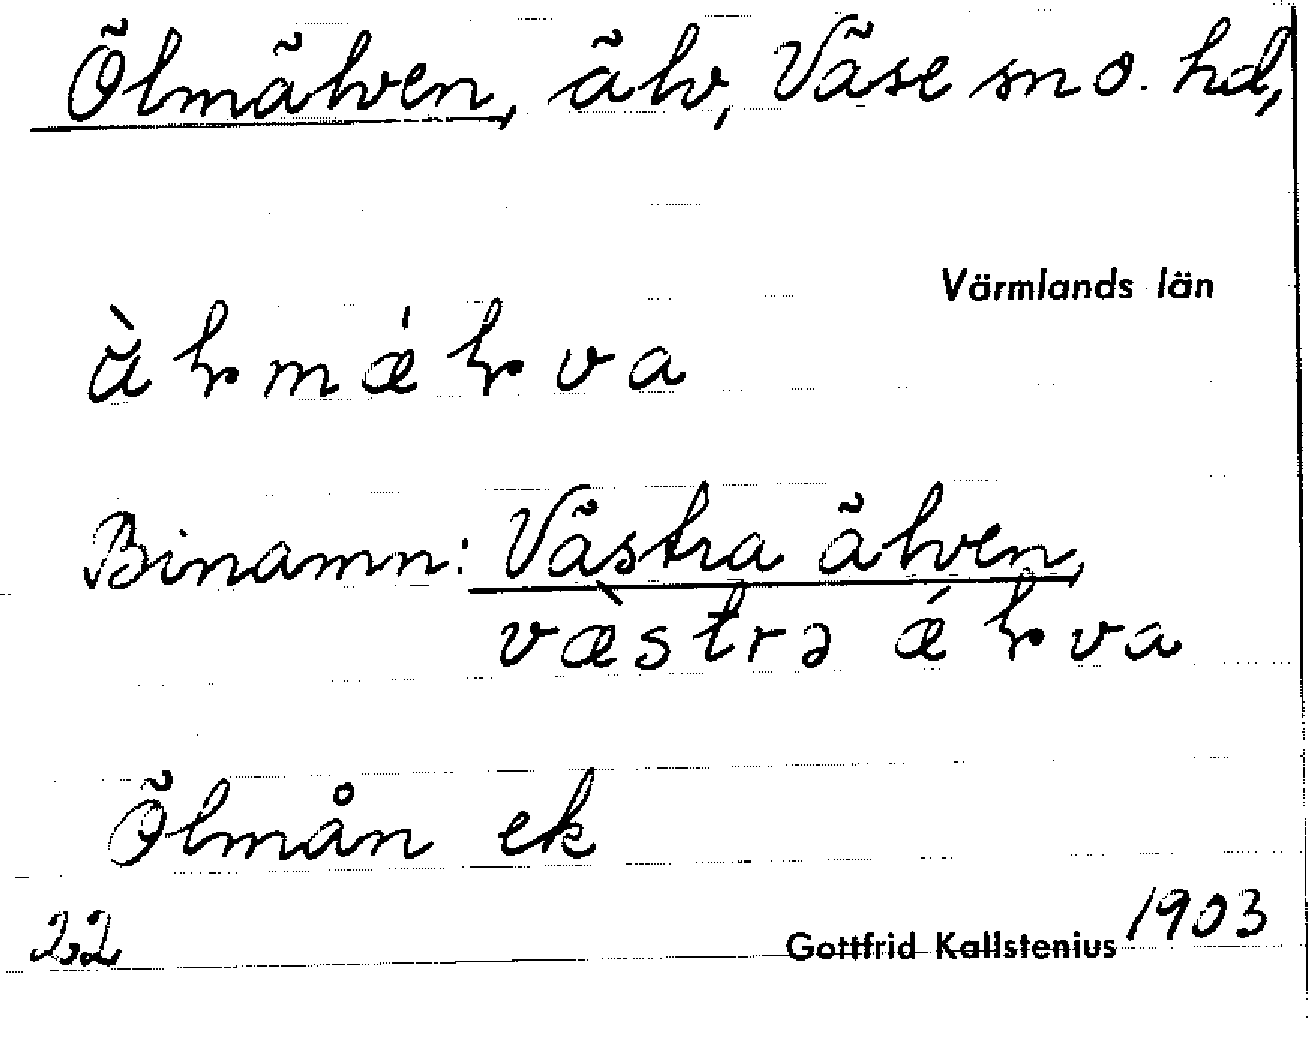 Ölmälven, älv, Väse sn o. hd,
Värmlands län
Binamn: Västra älven,
Ölmån ek
22
Gottfrid Kallstenius 1903